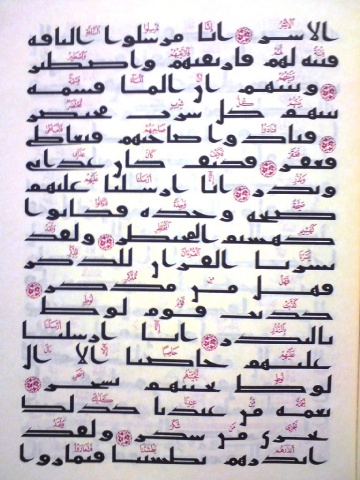 الاشر انا مرسلوا الناقة
فتنة لهم فارتقبهم واصطبر
ونبئهم ان الما قسمة
بينهم كل شرب محتضر
فنادوا صاحبهم فتعاطى
فعقر فكيف كان عذابى
ونذر انا ارسلنا عليهم
صيحة وحدة فكانوا
كهشيم المحتظر ولقد
يسرنا القران للذكر
فهل من مدكر
كذبت قوم لوط
بالنذر انا ارسلنا
عليهم حاصبا الا ال
لوط نجينهم بسحر
نعمة من عندنا كذلك
نجزى من شكر ولقد
انذرهم بطشتنا فتماروا